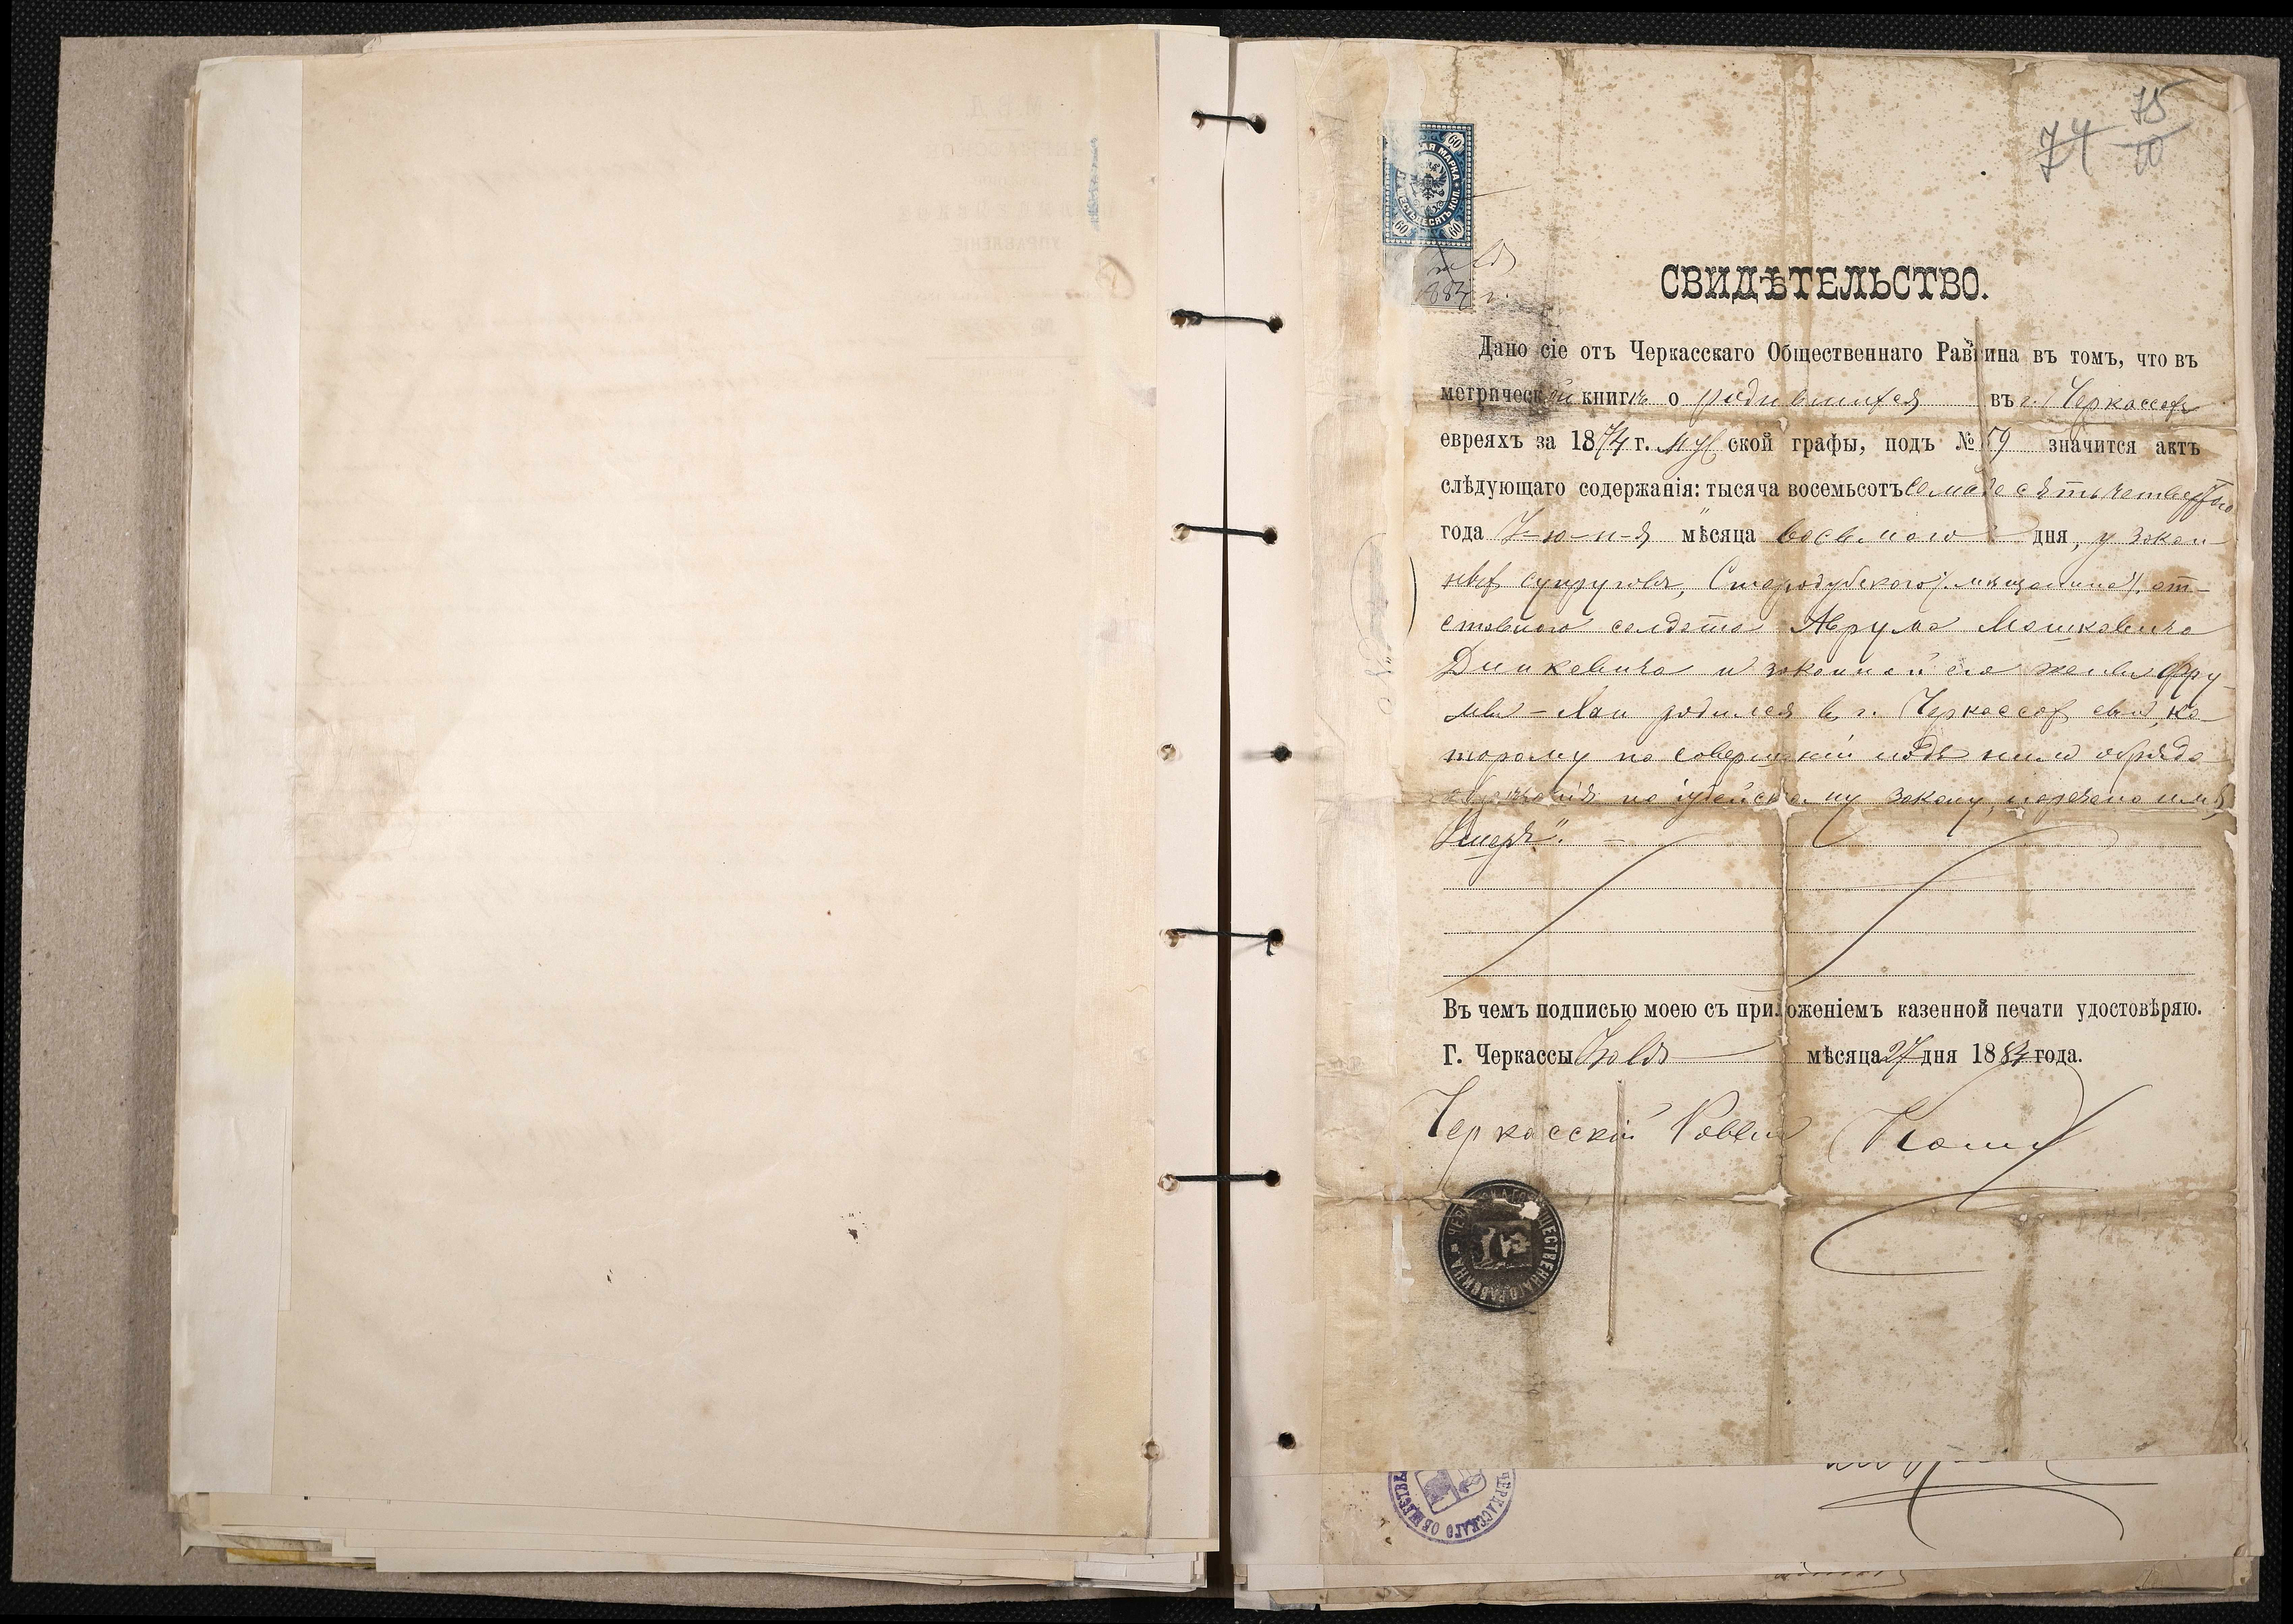 75
74 10
60
АЯ МАРКА
ШЕСТЬДЕСЯТЪ КОП.
60 60
1884 г.
СВИДѢТЕЛЬСТВО.
Дано сіе отъ Черкасскаго Общественнаго Раввина въ томъ, что въ
метрической книгѣ о родившихся въ г. Черкассахъ
евреяхъ за 1874 г. муж ской графы, подъ № 59 значится актъ
слѣдующаго содержанія: тысяча восемьсотъ семьдесятъ четвертаго
года Іюня мѣсяца восьмого дня, у закон-
ныхъ супруговъ, Стародубскаго мѣщанина, от-
ставного солдата Аврума Мошковича
Динкевича и законной его жены Фру-
мы-Хаи родился въ г. Черкассахъ сынъ, ко-
торому по совершеніи надъ нимъ обряда
обрѣзанія по іудейскому закону, наречено имя
"
Г. Черкассы Іюля мѣсяца 27 дня 1884 года.
Въ чемъ подписью моею съ приложеніемъ казенной печати удостовѣряю.
Черкасскій Раввинъ
ЧЕРКАССКАГО ОБЩЕСТВЕННАГО РАВВИНА
ЧЕРКАССКАГО ОБЩЕСТВ
УПРАВЛЕНІЕ